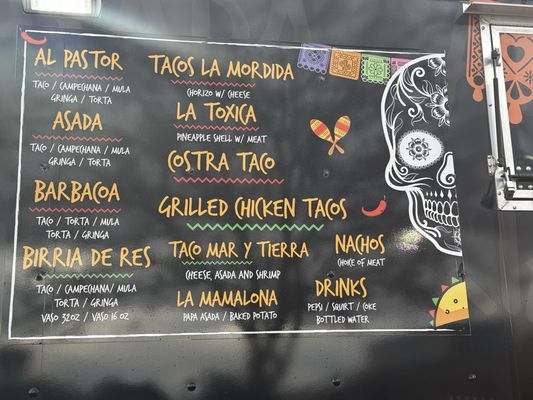 AL PASTOR
TACO / CAMPECHANA / MULA
GRINGA / TORTA
ASADA
TACO / CAMPECHANA / MULA
GRINGA / TORTA
BARBACOA
TACO / TORTA / MULA
TORTA / GRINGA
BIRRIA DE RES
TACO / CAMPECHANA/ MULA
TORTA / GRINGA
VASO 32OZ / VASO 16 OZ
TACOS LA MORDIDA
CHORIZO W/ CHEESE
LA TOXICA
PINEAPPLE SHELL W/ MEAT
COSTRA TACO
GRILLED CHICKEN TACOS
TACO MAR Y TIERRA
CHEESE, ASADA AND SHRIMP
LA MAMALONA
PAPA ASADA / BAKED POTATO
NACHOS
CHOICE OF MEAT
DRINKS
PEPSI / SQUIRT / COKE
BOTTLED WATER